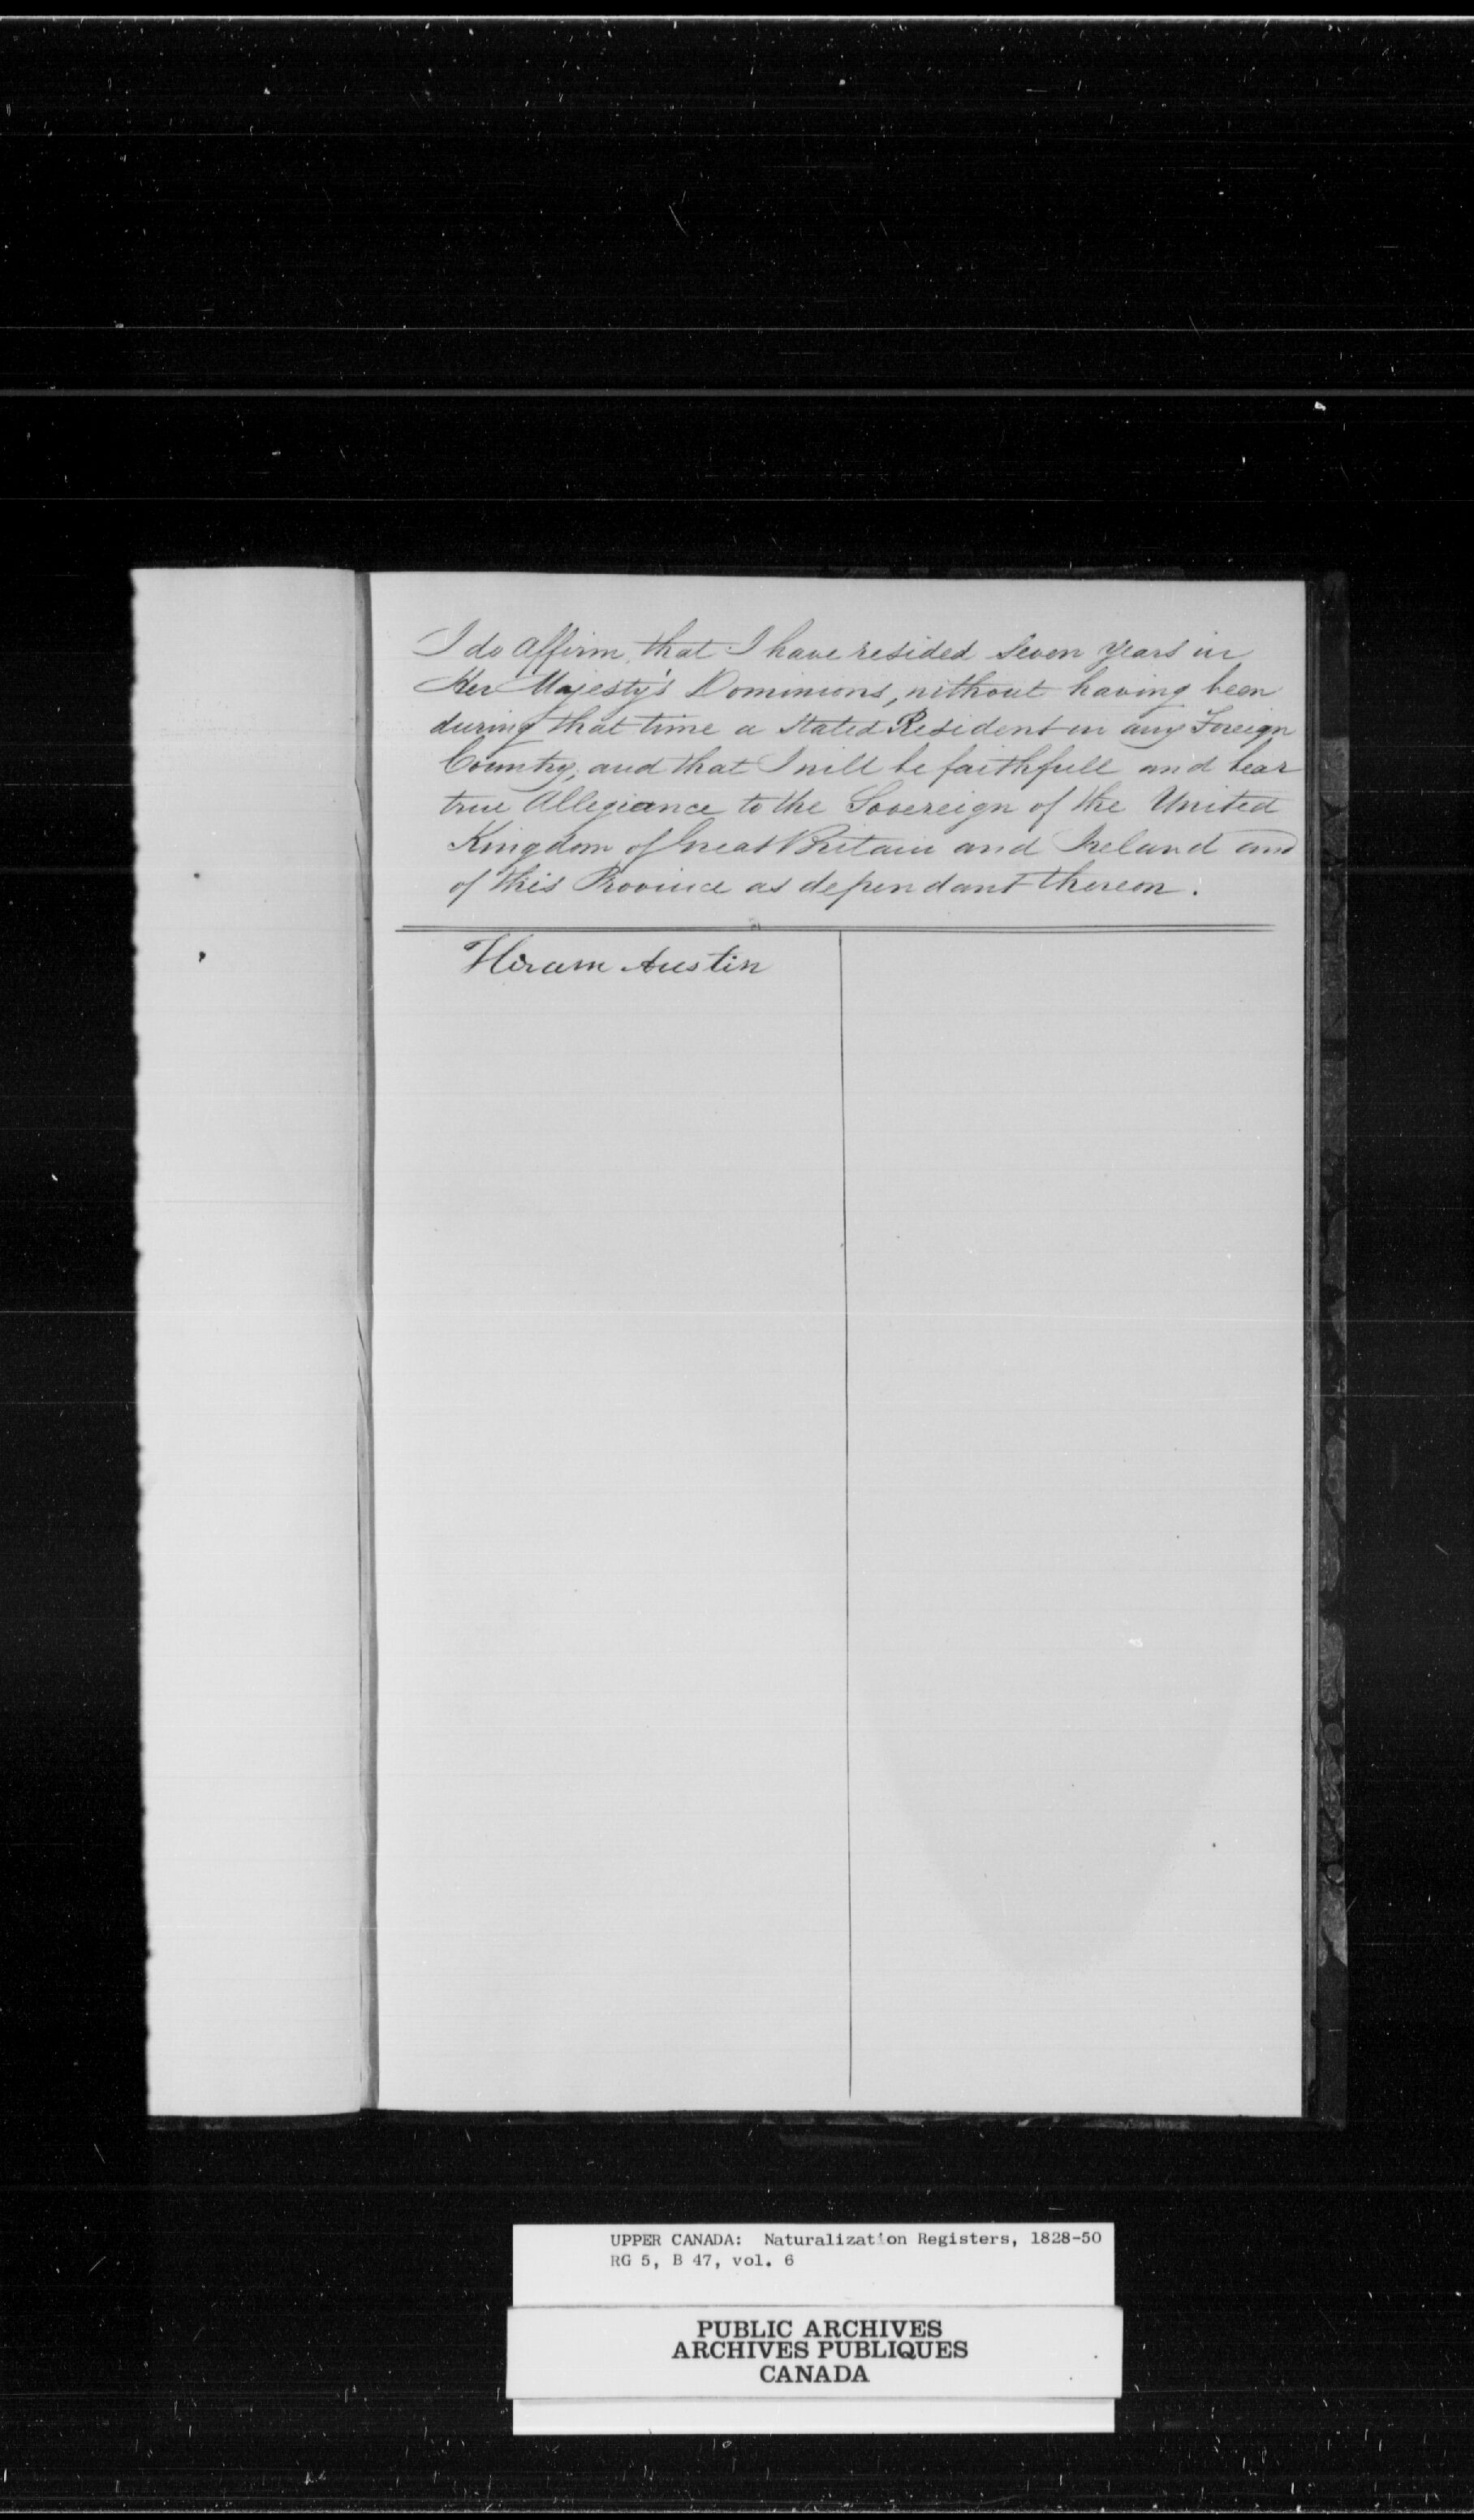 I do affirm, that I have resided Seven years in
Her Majesty's Dominions, without having been
during that time a Stated Resident in any Foreign
Country, and that I will be faithfull and bear
true Allegiance to the Sovereign of the United
Kingdom of Great Britain and Ireland and
of this Province as dependant thereon.
Hiram Austin
UPPER CANADA: Naturalization Registers, 1828-50
RG 5, B 47, vol. 6
PUBLIC ARCHIVES
ARCHIVES PUBLIQUES
CANADA